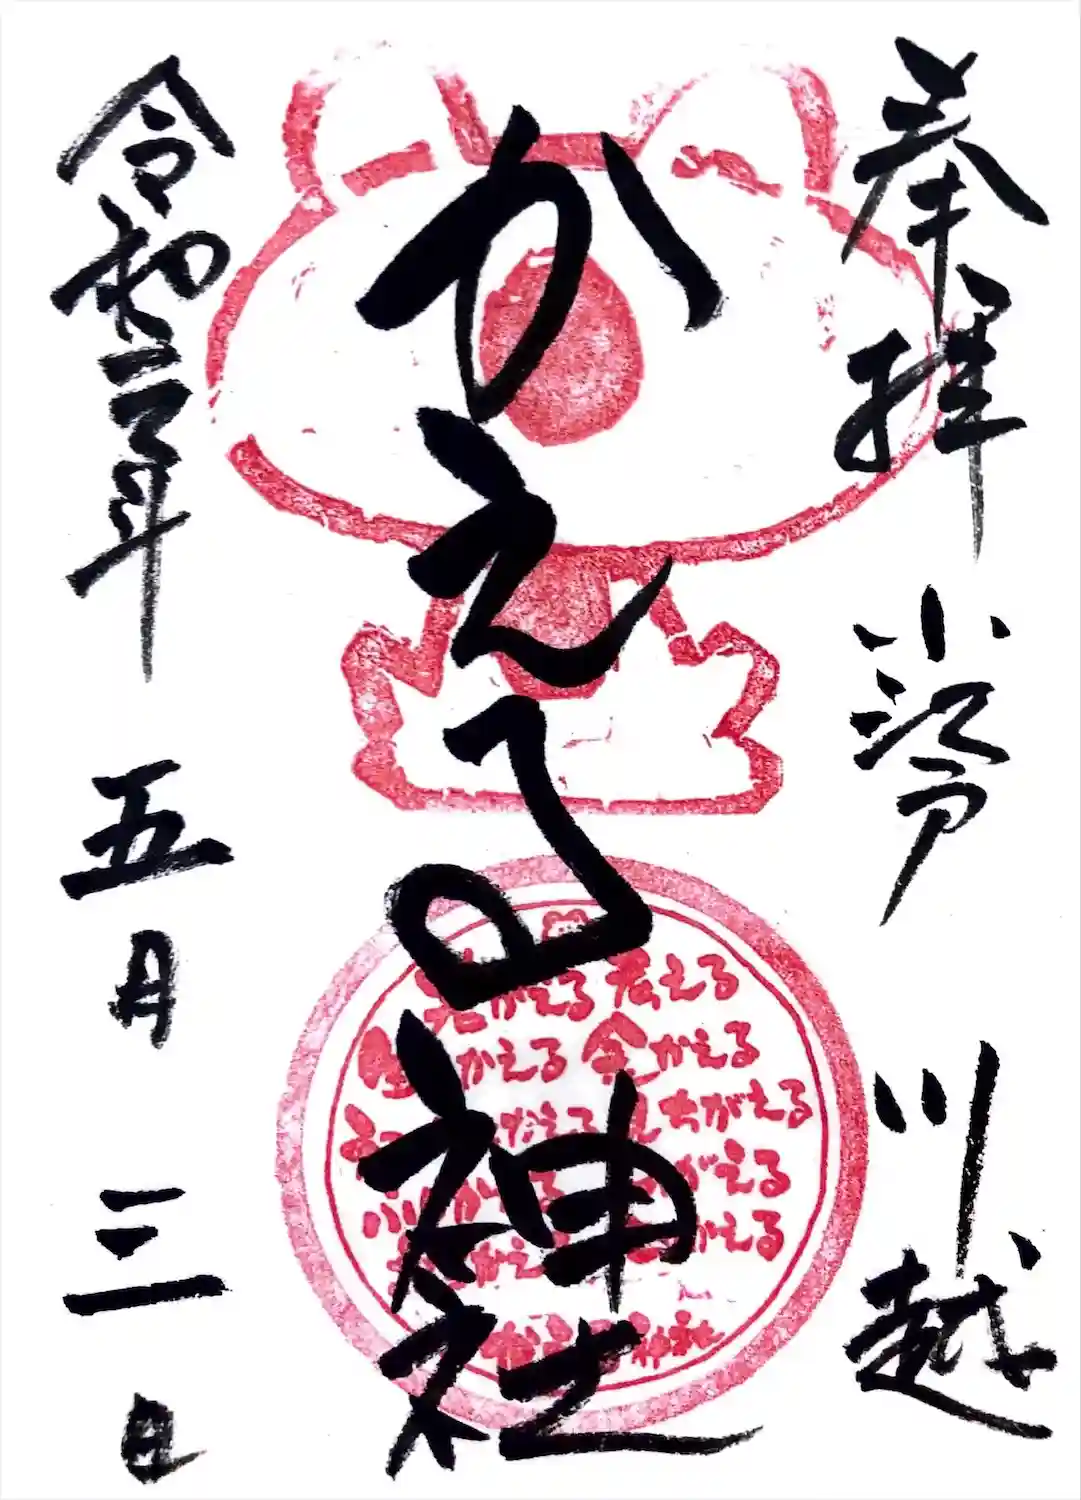 奉拝 小江戸 川越
かえる神社
令和三年 五月 三日
若がえる 考える
かえる 金かえる
ちがえる
がえる
かえる
神社